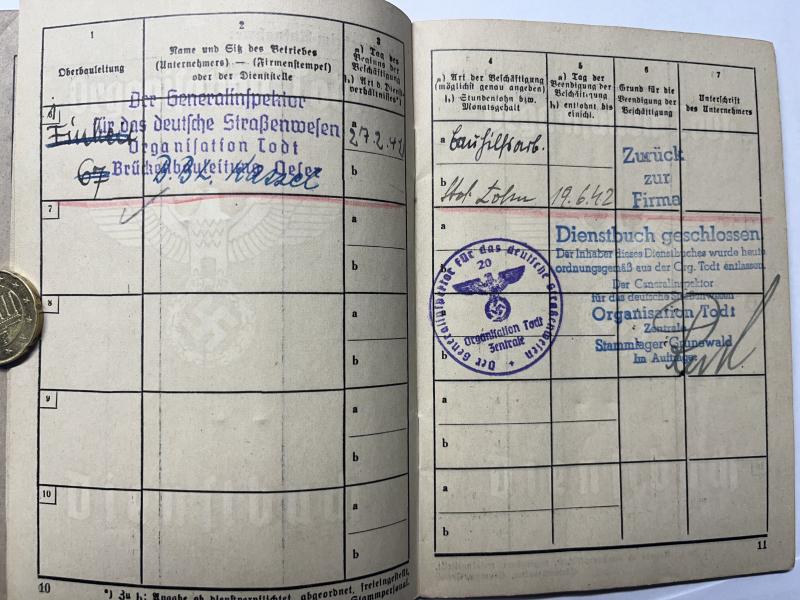 1
Oberbauleitung
2
Name und Sitz des Betriebes
(Unternehmers) — (Firmenstempel)
oder der Dienststelle
3
a) Tag des
Beginns der
Beschäftigung
b) Art d. Dienst-
verhältnisses*)
Der Generalinspektor
für das deutsche Straßenwesen
Organisation Todt
67
B.B.L. Kassel
a
27.2.42
b
7
8
a
b
9
a
b
10
a
b
10
*) Zu b: Angabe ob dienstverpflichtet, abgeordnet, freigestellt,
Stammpersonal.
4
a) Art der Beschäftigung
(möglichst genau angeben)
b) Stundenlohn bzw.
Monatsgehalt
5
a) Tag der
Beendigung der
Beschäftigung
b) entlohnt bis
einschl.
6
Grund für die
Beendigung der
Beschäftigung
7
Unterschrift
des Unternehmers
a Bauhilfsarb.
b
19.6.42
Zurück
zur
Firma
a
b
Dienstbuch geschlossen
Der Inhaber dieses Dienstbuches wurde heute
ordnungsgemäß aus der Org. Todt entlassen.
Der Generalinspektor
für das deutsche Straßenwesen
Organisation Todt
Zentrale
Stammlager Grunewald
Im Auftrage:
Der Generalinspektor für das deutsche Straßenwesen
20
Organisation Todt
Zentrale
a
b
a
b
11